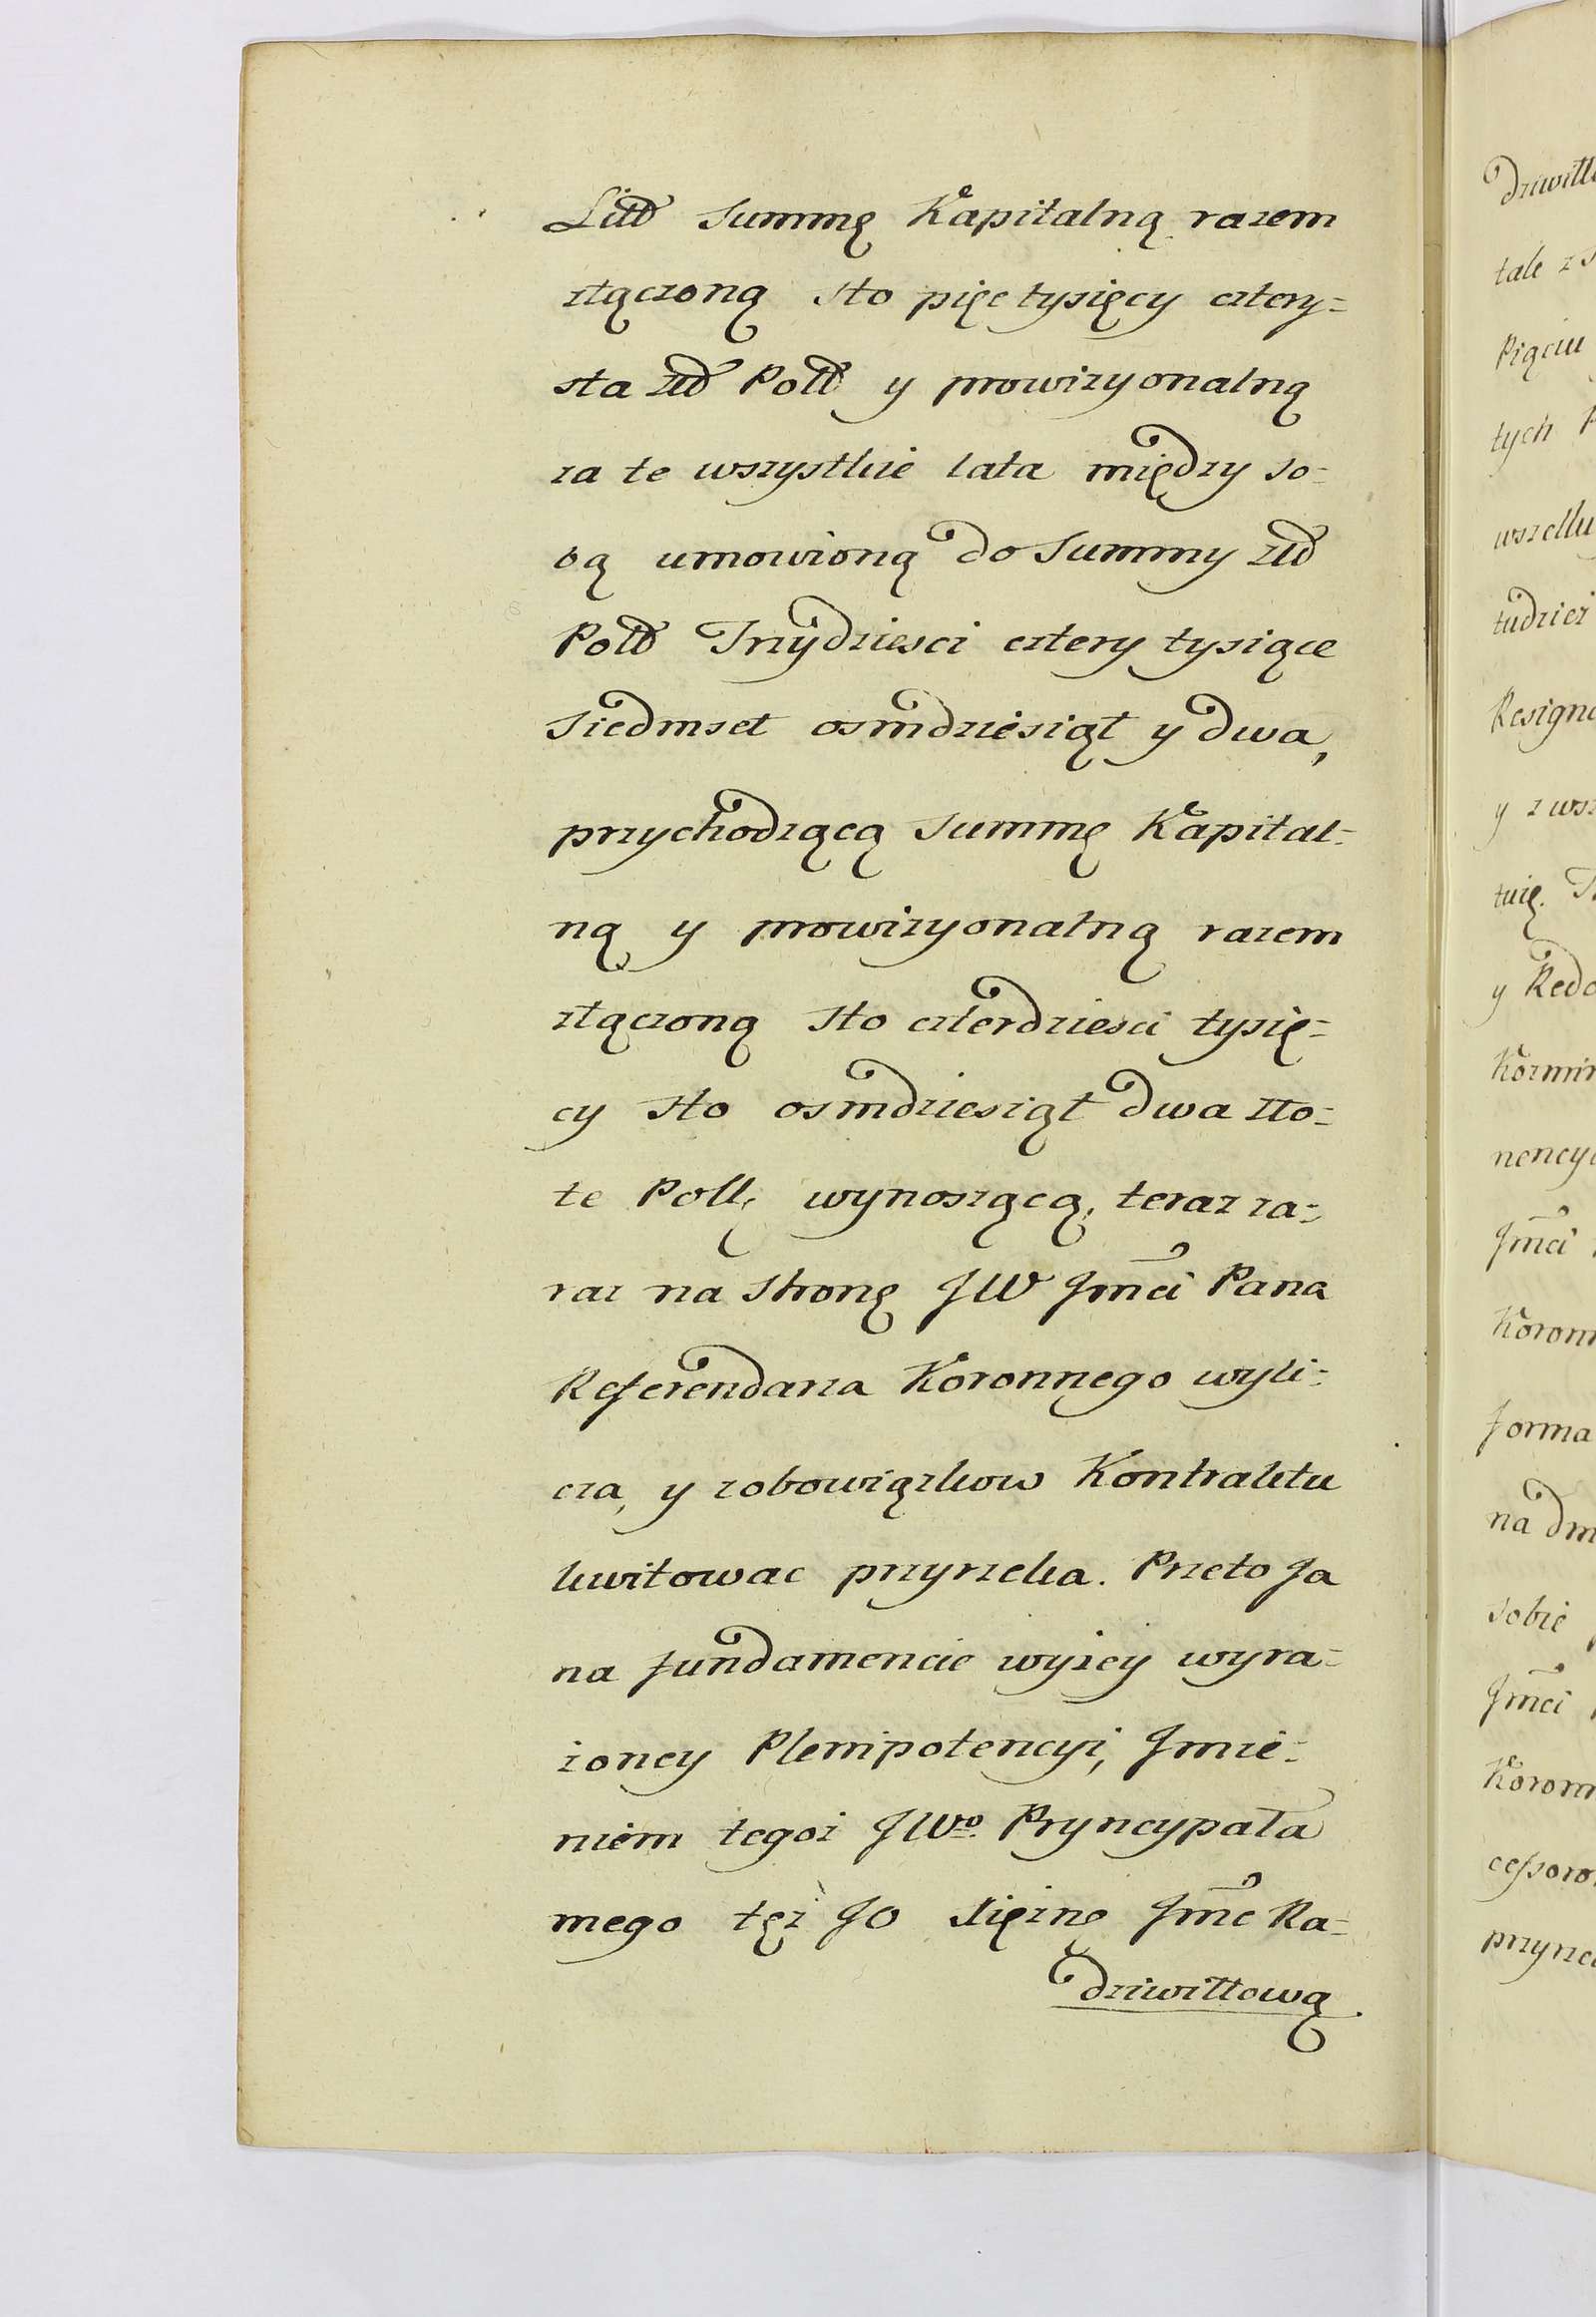 Litt Summę Kapitalną razem
złączoną sto pięc tysięcy cztery=
sta złł Poll y prowizyonalną
za te wszystkie lata między so=
bą umowioną do Summy złł
Poll Trzydziesci cztery tysiące
Siedmset osmdziesiąt y dwa,
przychodzącą Summę Kapital=
ną y prowizyonalną razem
złączoną sto czterdziesci tysię=
cy sto osmdziesiąt dwa zło=
te Poll: wynoszącą, teraz za=
raz na stronę JW Jmći Pana
Referendarza Koronnego wyli=
cza, y zobowiązkow Kontraktu
kwitowac przyrzeka. Przeto Ja
na fundamencie wyżey wyra=
żoney Plenipotencyi, Jmie=
niem tegoż JWo. Pryncypała
mego też JO Xiężnę Jmć Ra=
dziwiłłową.
Dziwiłł
tale z
Pięciu
tych
wszelk
tudzież
Resign
y z wsz
tuię.
y
Kozmin
nency
Jmći
Koron
forma
na
sobie
Jmći
Koron
cessoro
przyrze